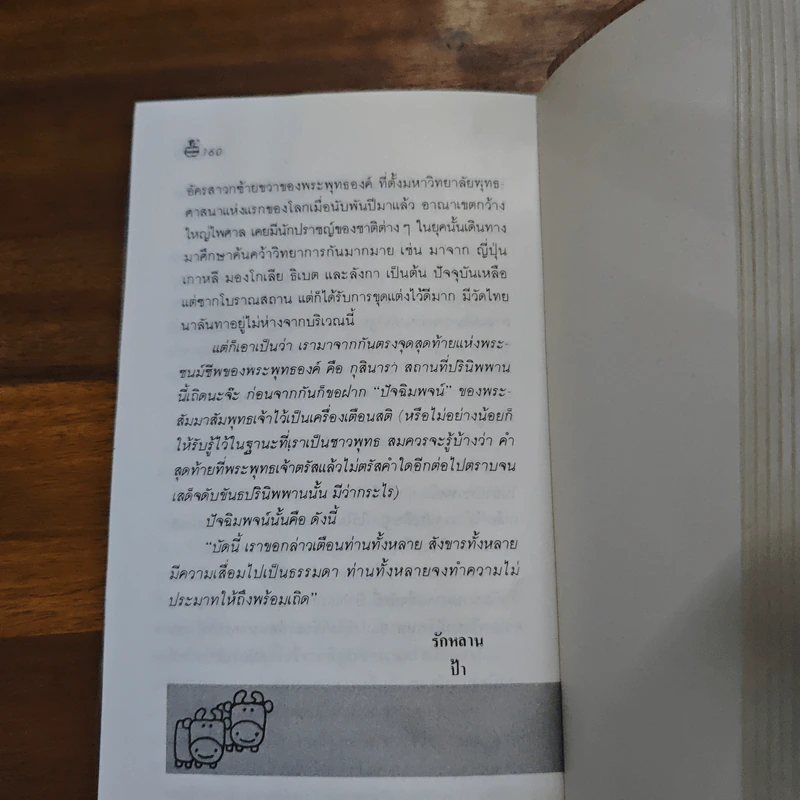 160
อัครสาวกซ้ายขวาของพระพุทธองค์ ที่ตั้งมหาวิทยาลัยพุทธ-
ศาสนาแห่งแรกของโลกเมื่อนับพันปีมาแล้ว อาณาเขตกว้าง
ใหญ่ไพศาล เคยมีนักปราชญ์ของชาติต่าง ๆ ในยุคนั้นเดินทาง
มาศึกษาค้นคว้าวิทยาการกันมากมาย เช่น มาจาก ญี่ปุ่น
เกาหลี มองโกเลีย ธิเบต และลังกา เป็นต้น ปัจจุบันเหลือ
แต่ซากโบราณสถาน แต่ก็ได้รับการขุดแต่งไว้ดีมาก มีวัดไทย
นาลันทาอยู่ไม่ห่างจากบริเวณนี้
แต่ก็เอาเป็นว่า เรามาจากกันตรงจุดสุดท้ายแห่งพระ-
ชนม์ชีพของพระพุทธองค์ คือ กุสินารา สถานที่ปรินิพพาน
นี้เถิดนะจ๊ะ ก่อนจากกันก็ขอฝาก “ปัจฉิมพจน์” ของพระ-
สัมมาสัมพุทธเจ้าไว้เป็นเครื่องเตือนสติ (หรือไม่อย่างน้อยก็
ให้รับรู้ไว้ในฐานะที่เราเป็นชาวพุทธ สมควรจะรู้บ้างว่า คำ
สุดท้ายที่พระพุทธเจ้าตรัสแล้วไม่ตรัสคำใดอีกต่อไปตราบจน
เสด็จดับขันธปรินิพพานนั้น มีว่ากระไร)
ปัจฉิมพจน์นั้นคือ ดังนี้
“บัดนี้ เราขอกล่าวเตือนท่านทั้งหลาย สังขารทั้งหลาย
มีความเสื่อมไปเป็นธรรมดา ท่านทั้งหลายจงทำความไม่
ประมาทให้ถึงพร้อมเถิด”
รักหลาน
ป้า